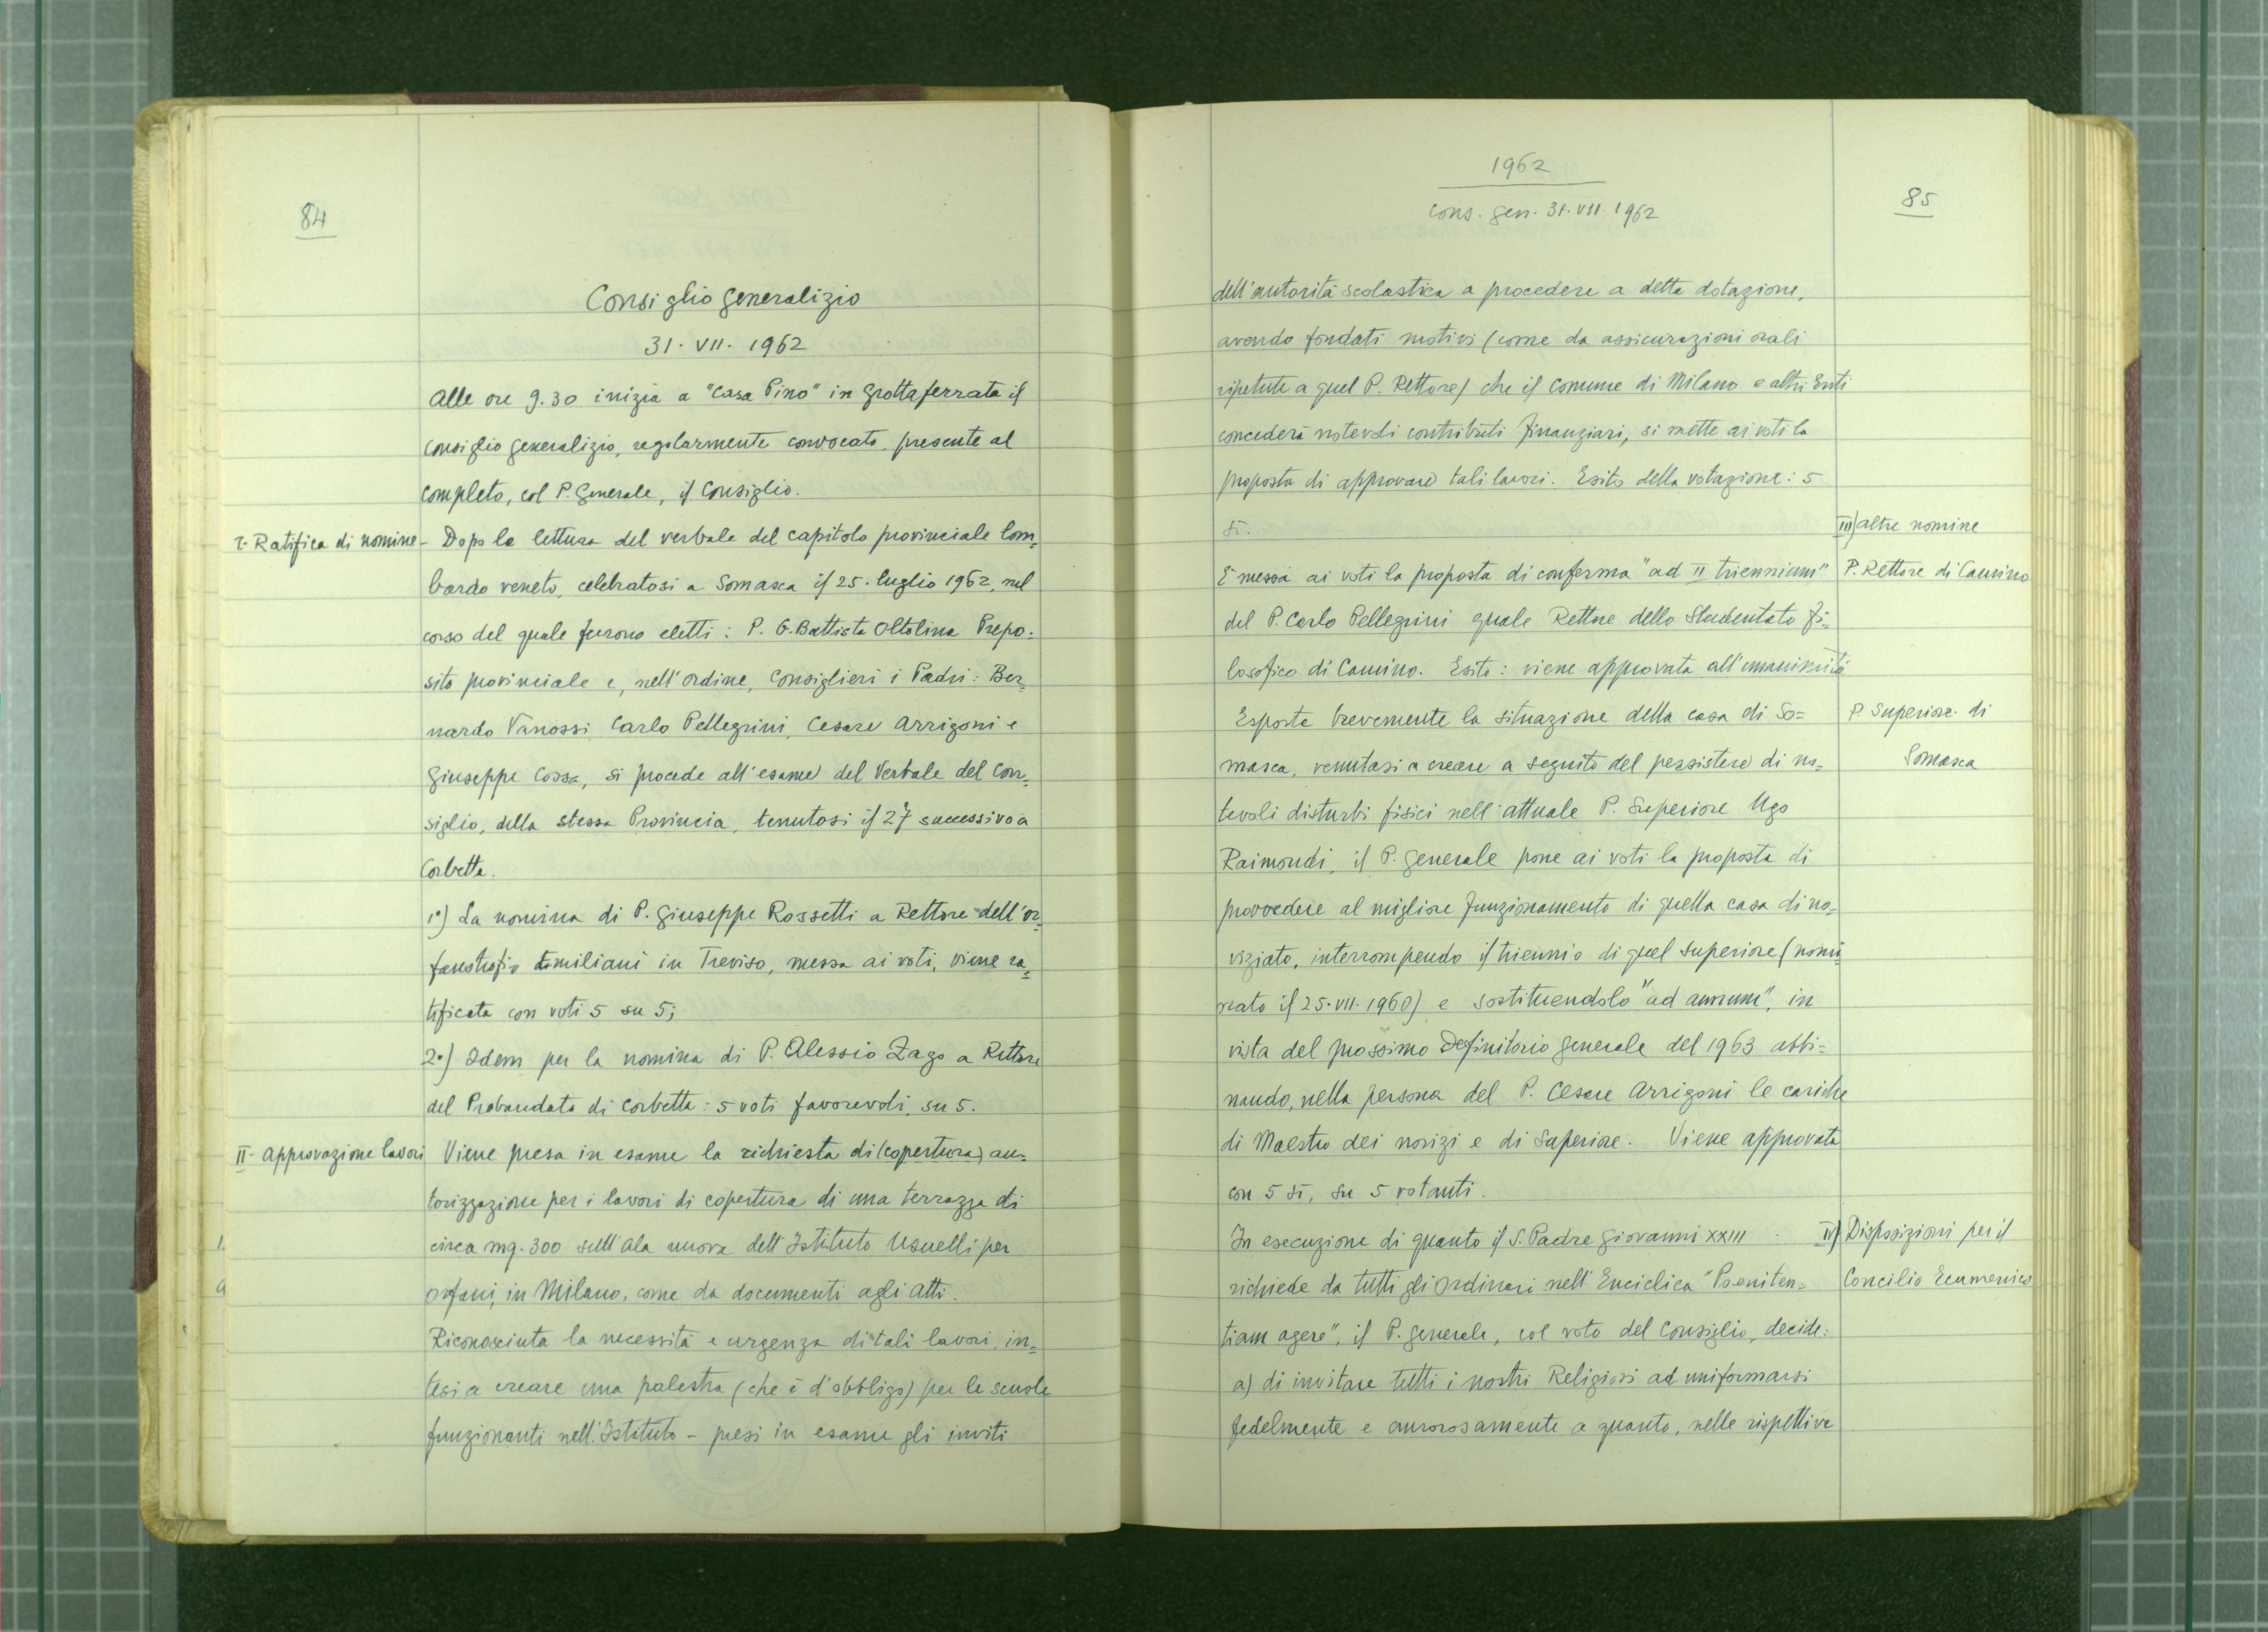 84
Consiglio generalizio
31. VII. 1962
Alle ore 9.30 inizia a "Casa Pino" in Grottaferrata il
Consiglio generalizio, regolarmente convocato, presente al
completo, col P. Generale, il Consiglio.
I. Ratifica di nomine - Dopo la lettura del verbale del capitolo provinciale lom=
bardo veneto, celebratosi a Somasca il 25. luglio 1962, nel
corso del quale furono eletti: P. G. Battista Oltolina Prepo=
sito provinciale e, nell'ordine, Consiglieri i Padri: Ber=
nardo Vanossi, Carlo Pellegrini, Cesare Arrigoni e
Giuseppe Cossa, si procede all'esame del Verbale del Con=
siglio, della stessa Provincia, tenutosi il 27 successivo a
Corbetta.
1°) La nomina di P. Giuseppe Rossetti a Rettore dell'or=
fanotrofio Emiliani in Treviso, messa ai voti, viene ra=
tificata con voti 5 su 5;
2°) Idem per la nomina di P. Alessio Zago a Rettore
del Probandato di Corbetta: 5 voti favorevoli, su 5.
II- Approvazione lavori Viene presa in esame la richiesta di (copertura) au=
torizzazione per i lavori di copertura di una terrazza di
circa mq. 300 sull'ala nuova dell'Istituto Usuelli per
orfani, in Milano, come da documenti agli Atti.
Riconosciuta la necessità e urgenza di tali lavori, in=
tesi a creare una palestra (che è d'obbligo) per le scuole
funzionanti nell'Istituto - presi in esame gli inviti
1962
Cons. gen. 31. VII. 1962
85
dell'autorità scolastica a procedere a detta dotazione,
avendo fondati motivi (come da assicurazioni orali
ripetute a quel P. Rettore) che il Comune di Milano e altri Enti
concederà notevoli contributi finanziari, si mette ai voti la
proposta di approvare tali lavori. Esito della votazione: 5
sì.
III) altre nomine
È messa ai voti la proposta di conferma "ad II triennium"
P. Rettore di Camino
del P. Carlo Pellegrini quale Rettore dello Studentato fi=
losofico di Camino. Esito: viene approvata all'unanimità
Esposta brevemente la situazione della casa di So=
P. Superiore di
Somasca
masca, venutasi a creare a seguito del persistere di no=
tevoli disturbi fisici nell'attuale P. Superiore Ugo
Raimondi, il P. Generale pone ai voti la proposta di
provvedere al migliore funzionamento di quella casa di no=
viziato, interrompendo il triennio di quel Superiore (nomi=
nato il 25. VII. 1960) e sostituendolo "ad annum", in
vista del prossimo Definitorio generale del 1963 abbi=
nando, nella persona del P. Cesare Arrigoni le cariche
di Maestro dei novizi e di Superiore. Viene approvata
con 5 sì, su 5 votanti.
In esecuzione di quanto il S. Padre Giovanni XXIII
IV) Disposizioni per il
Concilio Ecumenico
richiede da tutti gli Ordinari nell'Enciclica "Poeniten=
tiam agere", il P. Generale, col voto del Consiglio, decide:
a) di invitare tutti i nostri Religiosi ad uniformarsi
fedelmente e amorosamente a quanto, nelle rispettive